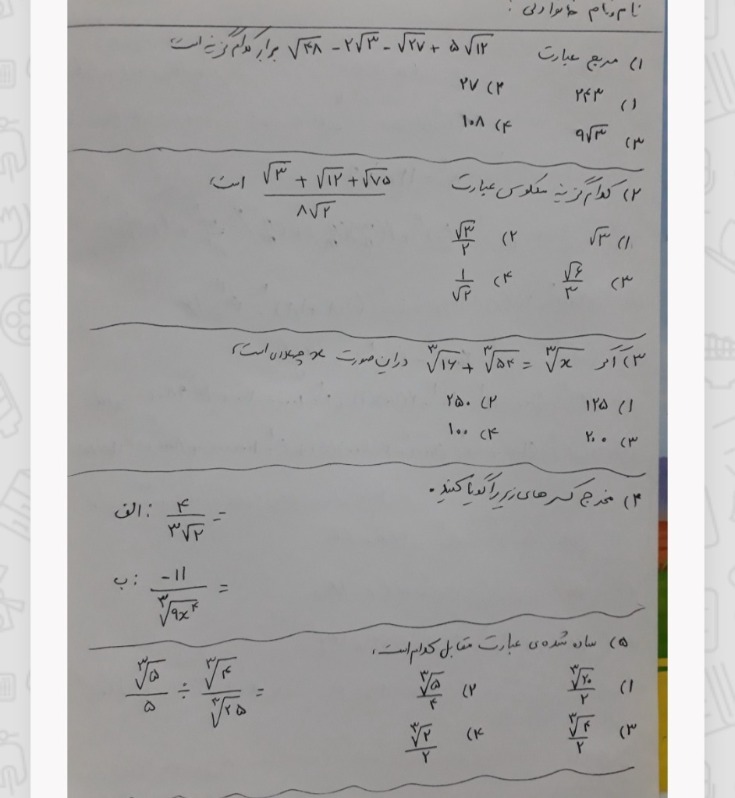 نام و نام خانوادگی :
۱) مربع عبارت √۴۸ − ۲√۳ − √۲۷ + ۵√۱۲ برابر کدام گزینه است
۱) ۲۴۳ ۲) ۲۷
۳) ۹√۳ ۴) ۱۰۸
۲) کدام گزینه معکوس عبارت (√۳ + √۱۲ + √۷۵)/(۸√۲) است
۱) √۳ ۲) √۳/۲
۳) √۶/۳ ۴) ۱/√۲
۳) اگر ∛۱۶ + ∛۵۴ = ∛x در این صورت x چه عددی است؟
۱) ۱۲۵ ۲) ۲۵۰
۳) ۲۰۰ ۴) ۱۰۰
۴) مخرج کسرهای زیر را گویا کنید.
الف: ۴/(۳√۲) =
ب: −۱۱/∛(۹x⁴) =
۵) ساده شده‌ی عبارت مقابل کدام است؟ ∛۵/۵ ÷ ∛۴/∛۲۵ =
۱) ∛۲۰/۲ ۲) ∛۵/۴
۳) ∛۴/۲ ۴) ∛۲/۲